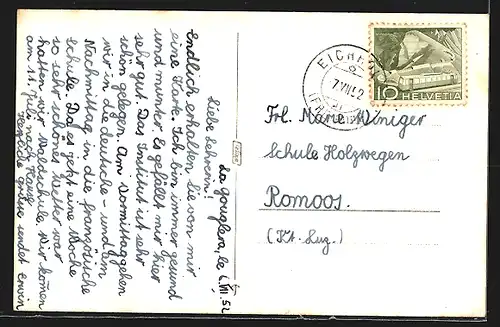 La Gouglera, le 6. VII. 52
Liebe Lehrerin!
Endlich erhalten Sie von mir
eine Karte. Ich bin immer gesund
und munter. Es gefällt mir hier
sehr gut. Das Institut ist sehr
schön gelegen. Am Vormittag gehen
wir in die deutsche- und am
Nachmittag in die französische
Schule. Da es jetzt eine Woche
so sehr schönes Wetter war
hatten wir Waldschule. Wir kommen
am 11. Juli nach Hause
Herzliche Grüsse sendet Erwin
EICHHOLZ
7.VII.52
10 HELVETIA
Frl. Marie Winiger
Schule Holzwegen
Romoos.
(Kt. Luz.)